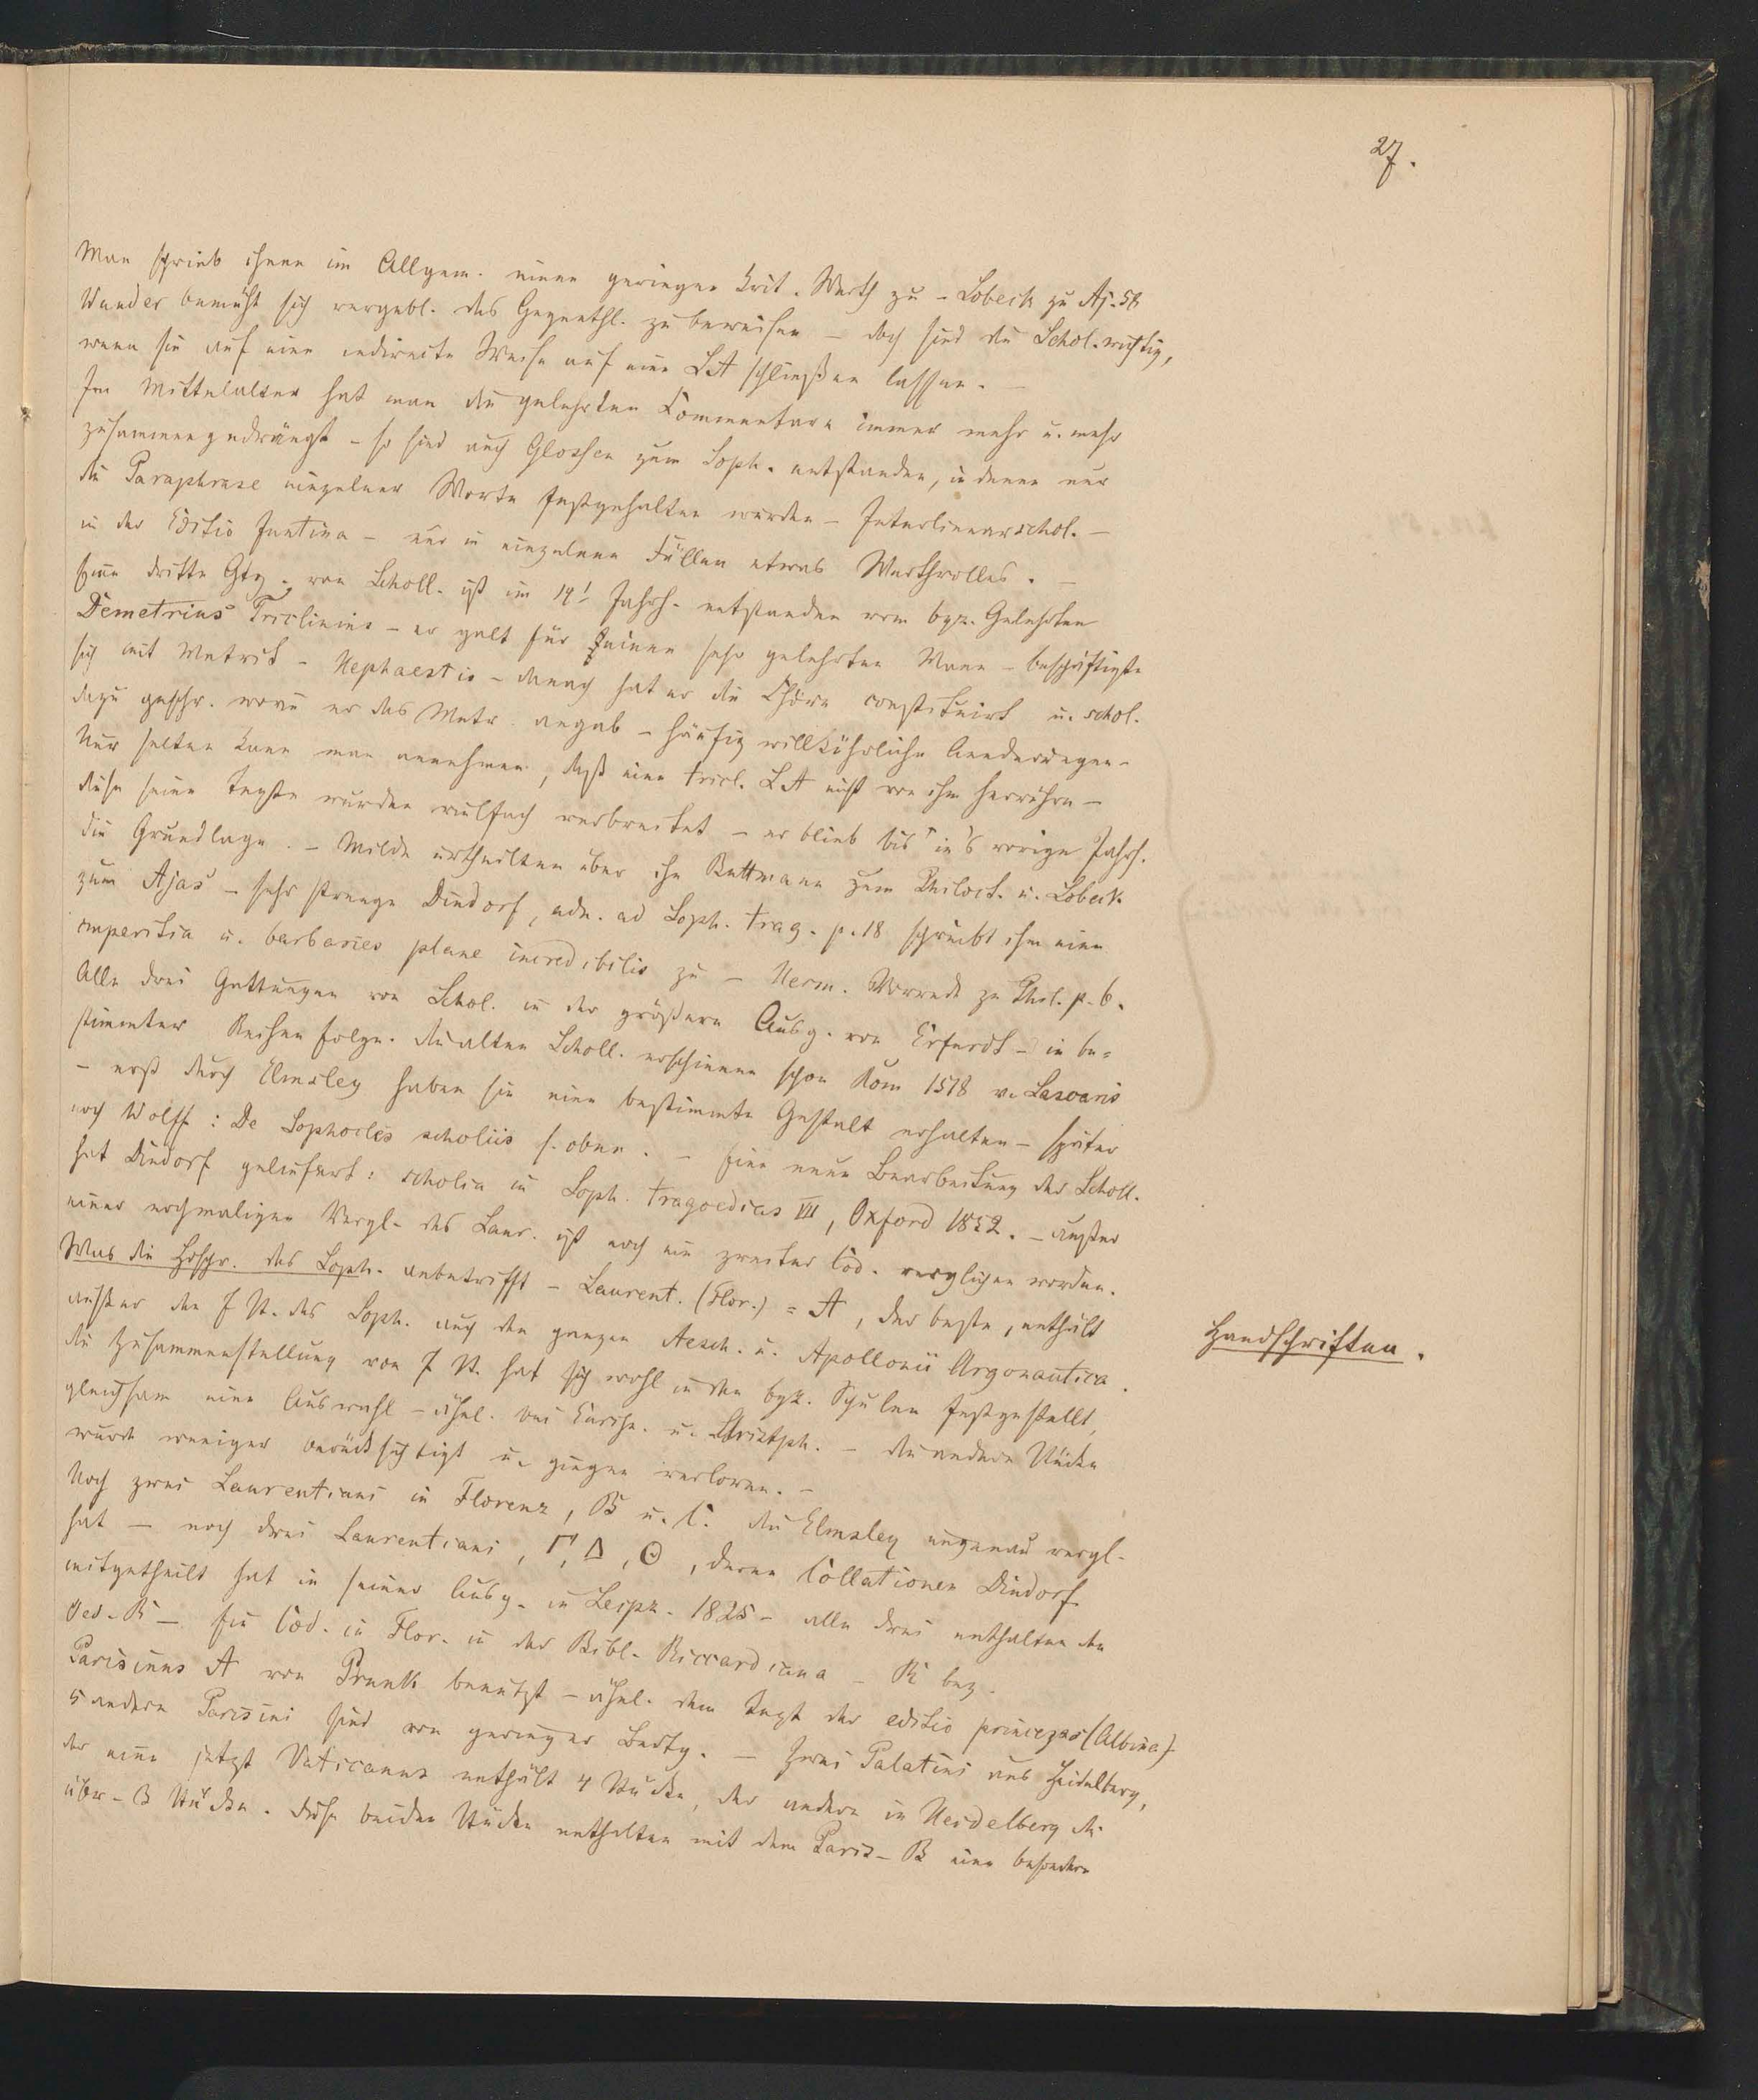 27.
Man schrieb ihnen im Allgem. einen geringen krit. Werth zu – Lobeck zu Aj. 58
Wunder bemüht sich vergebl. das Gegenthl. zu beweisen – doch sind die Schol. wichtig,
wenn sie auf eine indirecte Weise auf eine LA schließen lassen. –
Im Mittelalter hat man die gelehrten Commentare immer mehr u. mehr
zusammengedrängt – so sind auch Glossen zum Soph. entstanden, in denen nur
die Paraphrase einzelner Worte festgehalten wurden – Interlinearschol. –
in der Editio Juntina – nur in einzelnen Fällen etwas Werthvolles. –
Eine dritte Gtg. von Scholl. ist im 14t Jahrh. entstanden vom byz. Gelehrten
Demetrius Triclinius – er galt für seinen sehr gelehrten Mann – beschäftigte
sich mit Metrik – Hephaestio – danach hat er die Chöre constituirt u. schol.
dazu geschr. worin er das Metr. angab – häufig willkührliche Aenderungen –
Nur selten kann man annehmen, daß eine tricl. LA nicht von ihm herrühre –
diese seine Texte wurden vielfach verbreitet – er blieb bis in's vorige Jahrh.
die Grundlage. – Milde urtheilten über ihn Buttmann zum Philoct. u. Lobeck
zum Ajas – sehr strenge Dindorf, adn. ad Soph. trag. p. 18 schreibt ihm eine
imperitia u. barbaries plane incredibilis zu – Herm. Vorrede zu Phil. p. 6.
Alle drei Gattungen von Schol. in der größern Ausg. von Erfurdt – in be=
stimmter Reihenfolge. Die alten Scholl. erschienen schon Rom 1518 v. Lascaris
– erst durch Elmsley haben sie eine bestimmte Gestalt erhalten – später
noch Wolff: De Sophocles scholiis s. oben. – Eine neue Bearbeitung der Scholl.
hat Dindorf geliefert: scholia in Soph. tragoedias VII, Oxford 1852. – außer
einer nochmaligen Vergl. des Laur. ist noch ein zweiter Cod. verglichen worden.
Was die Hdschr. des Soph. anbetrifft – Laurent. (Flor.) = A, der beste, enthält
außer den 7 St. des Soph. auch den ganzen Aesch. u. Apollonii Argonautica.
Handschriften.
die Zusammenstellung von 7 St. hat sich wohl in den byz. Schulen festgestellt,
gleichsam eine Auswahl – ähnl. bei Eurip. u. Aristph. – die andern Stücke
wurde weniger berücksichtigt u. gingen verloren. –
Noch zwei Laurentiani in Florenz, B u. C. die Elmsley ungenau vergl.
hat – noch drei Laurentiani, Γ, Δ, Θ, deren Collationen Dindorf
mitgetheilt hat in seiner Ausg. in Leipz. 1825 – alle drei enthalten den
Oed. R – Ein Cod. in Flor. in der Bibl. Riccardiana – R bez.
Parisinus A von Brunk benutzt – ähnl. dem Text der editio princeps (Aldina)
5 andere Parisini sind von geringer Bedtg. – Zwei Palatini aus Heidelberg,
der eine jetzt Vaticanus enthält 4 Stücke, der andere in Heidelberg die
übr. 3 Stücke. diese beiden Stücke enthalten mit dem Paris. B eine besondere